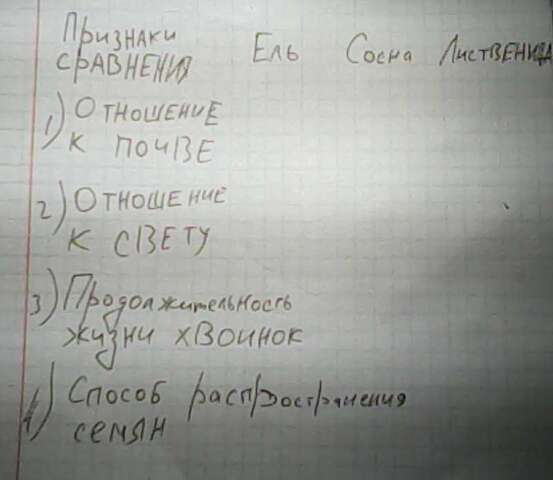 Признаки
сравнения Ель Сосна Лиственица
1) Отношение
к почве
2) Отношение
к свету
3) Продолжительность
жизни хвоинок
4) Способ распространения
семян